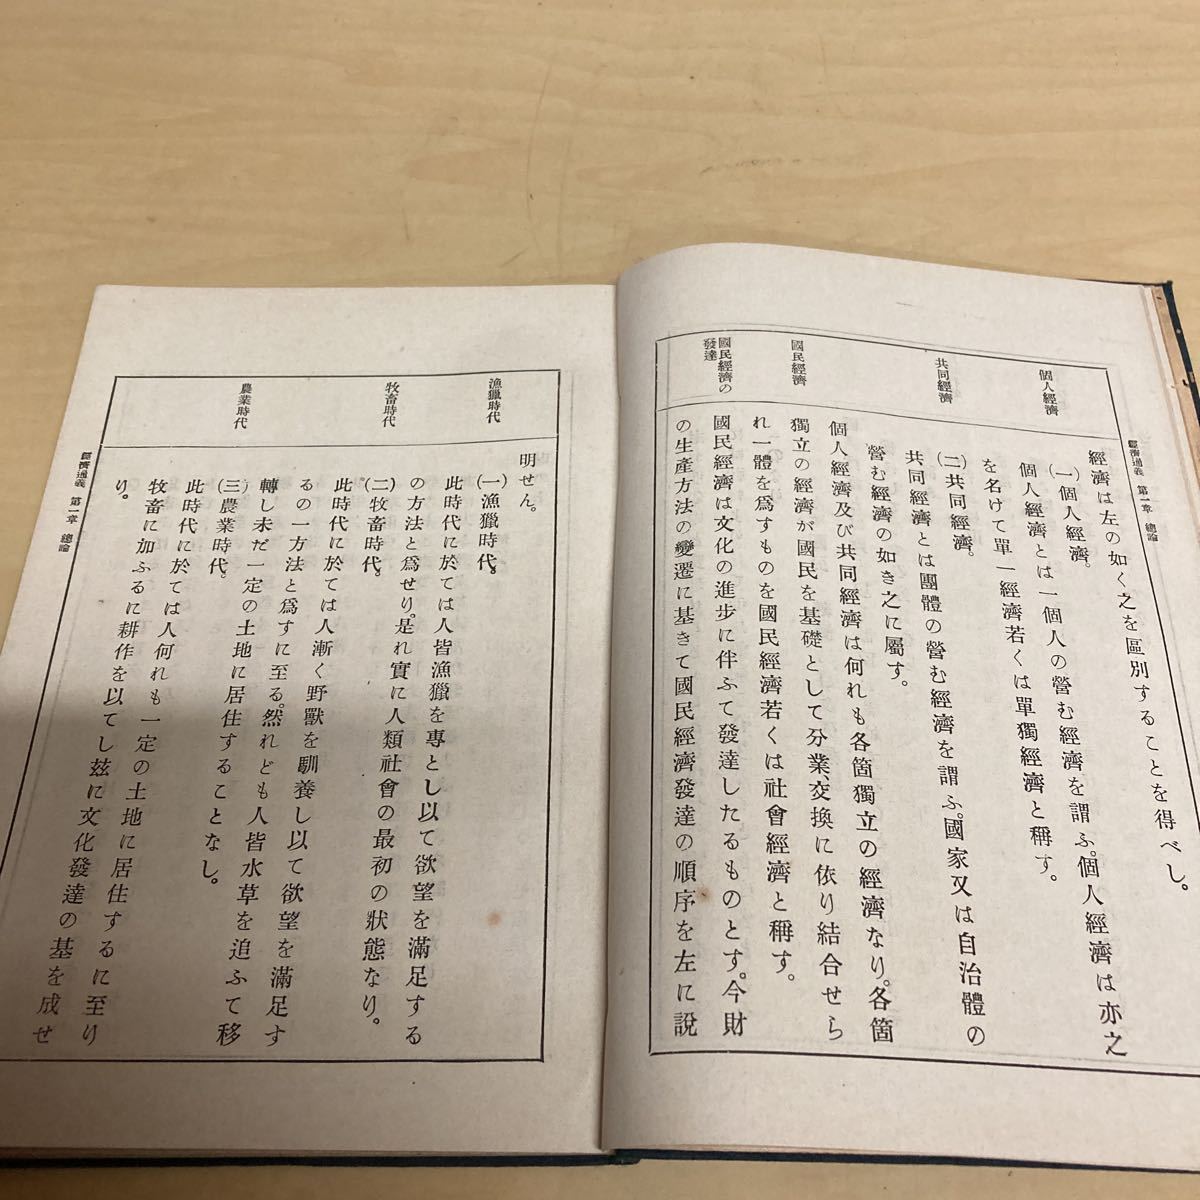 個人經濟
共同經濟
國民經濟
國民經濟の
發達
經濟通義 第一章 總論
經濟は左の如く之を區別することを得べし。
(一)個人經濟。
個人經濟とは一個人の營む經濟を謂ふ。個人經濟は亦之
を名けて單一經濟若くは單獨經濟と稱す。
(二)共同經濟。
共同經濟とは團體の營む經濟を謂ふ。國家又は自治體の
營む經濟の如き之に屬す。
個人經濟及び共同經濟は何れも各箇獨立の經濟なり。各箇
獨立の經濟が國民を基礎として分業、交換に依り結合せら
れ一體を爲すものを國民經濟若くは社會經濟と稱す。
國民經濟は文化の進步に伴ふて發達したるものとす。今財
の生產方法の變遷に基きて國民經濟發達の順序を左に說
漁獵時代
牧畜時代
農業時代
明せん。
(一)漁獵時代。
此時代に於ては人皆漁獵を專とし以て欲望を滿足する
の方法と爲せり是れ實に人類社會の最初の狀態なり。
(二)牧畜時代。
此時代に於ては人漸く野獸を馴養し以て欲望を滿足す
るの一方法と爲すに至る。然れども人皆水草を追ふて移
轉し未だ一定の土地に居住することなし。
(三)農業時代。
此時代に於ては人何れも一定の土地に居住するに至り
牧畜に加ふるに耕作を以てし玆に文化發達の基を成せ
り。
經濟通義 第一章 總論